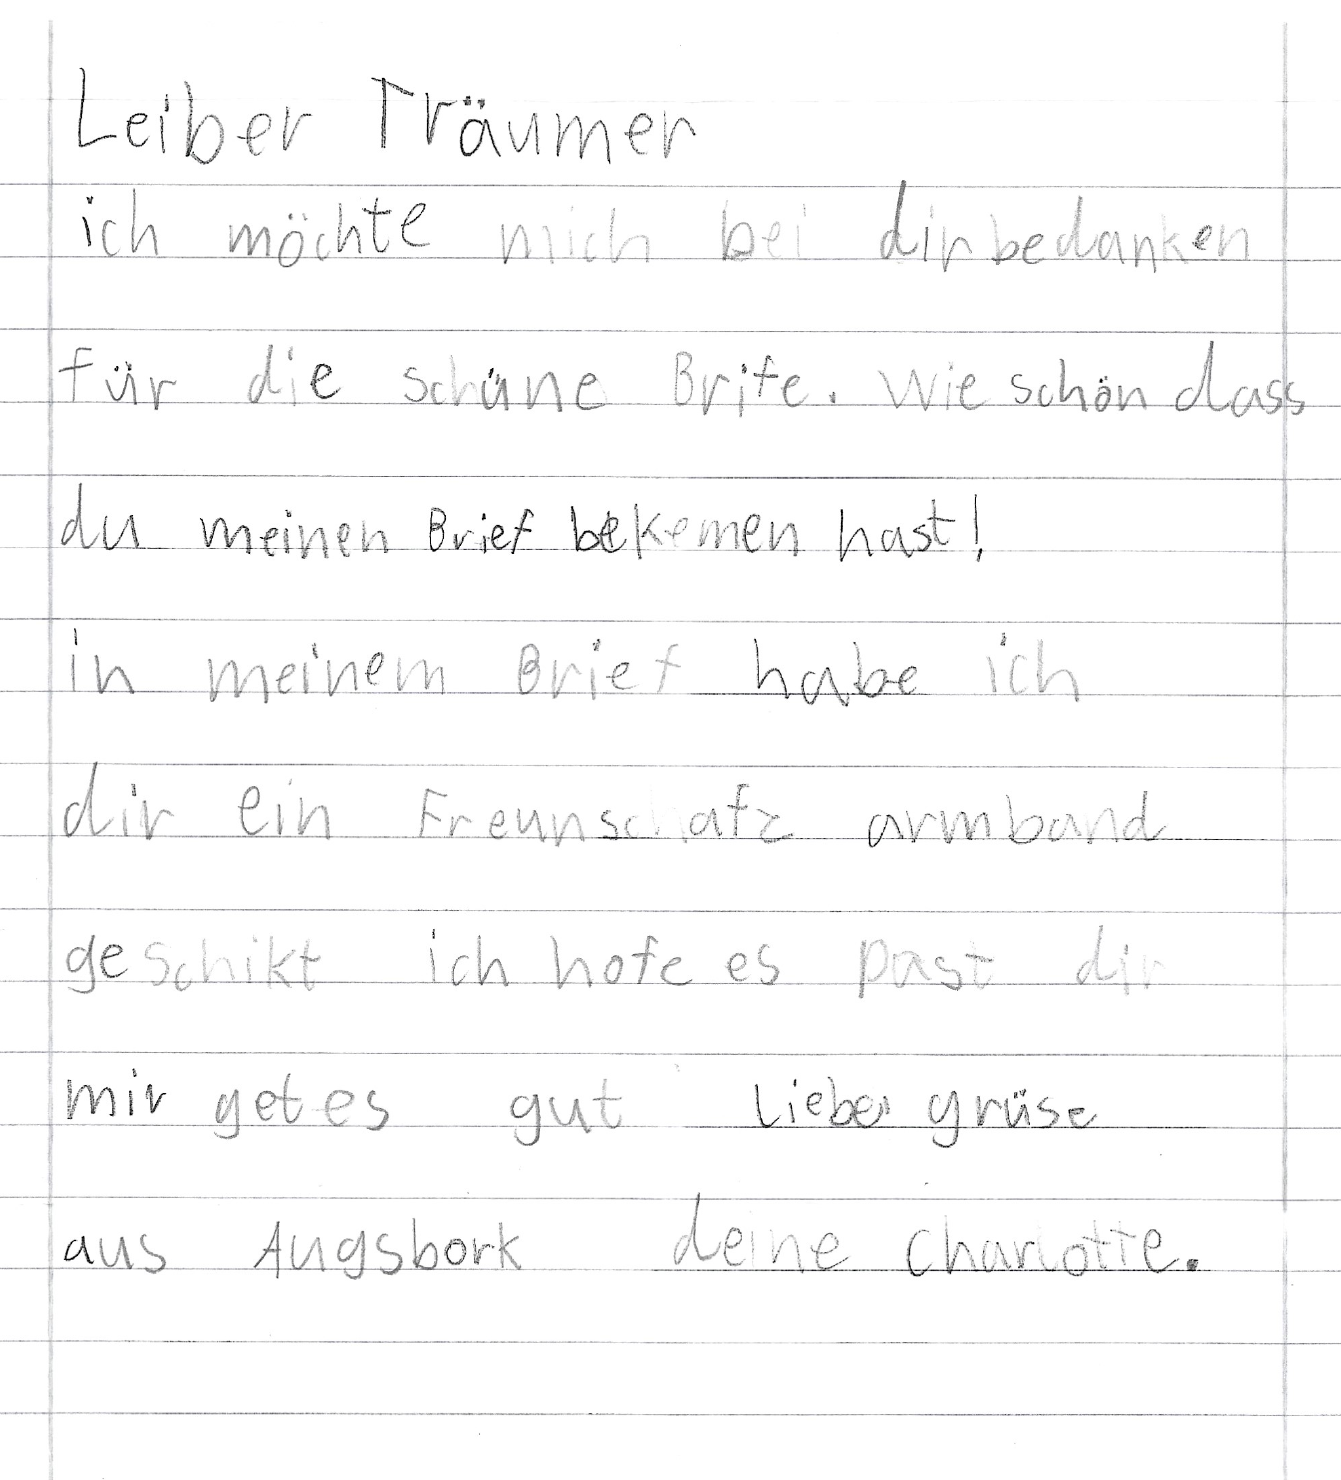 Leiber Träumer
ich möchte mich bei dir bedanken
für die schüne Brife. Wie schön dass
du meinen Brief bekemen hast!
in meinem Brief habe ich
dir ein Freunschafz armband
geschikt ich hofe es past dir
mir get es gut Lieber grüse
aus Augsbork deine Charlotte.